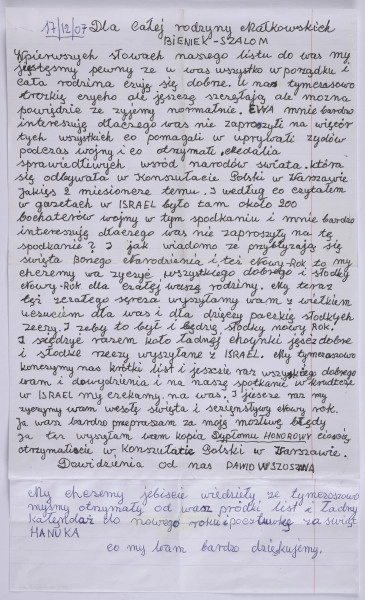 17/12/07 Dla Całej rodzyny Małkowskich
BIENIEK-SZALOM
W pierwszych słowach naszego listu do was my
jestesmy pewny ze u was wszystko w porządku i
cała rodzima czują się dobrze. U nas tymczasowo
troszkię cicho ale jeszcze ale można
powiędzic ze zyjemy normalnie. EWA mnie bardzo
interesują dlaczego was nie zaprosyli na więczór
tych wszystkich co pomagali w zydów
podczas wojny i co otrzymali Medalia
sprawiedliwych wsród narodów świata. która
się odbywała w Konsultacie Polski w Warszawie
Jakięs 2 miesionce temu. I według co czytałem
w gazetach w ISRAEL było tam około 200
bochaterów wojny w tym spodkaniu i mnie bardzo
interesują dlaczego was nie zaprosyły na tę
spodkanię? I jak wiadomo ze przyblyzają się
święta Bonego Narodzenia i też Nowy-Rok to my
chcemy wa zyczyć wszystkiego dobrego i słodky
Nowy-Rok dla czałej waszą rodziny. My teraz
też zczałego serca wysyłamy wam z wielkiem
ucuciem dla was i dla dzięczy paczkię słodkych
rzeczy. I zeby to był i będzię słodky nowy Rok.
I siędzię razem koło ładnej choynki jeszcze dobre
i słodke rzeczy wysyłane z ISRAEL. My tymczasowo
konczymy nas krótki list i jeszcie raz wszyskiego dobrego
wam i dowydzenia i na naszę spotkanie w krodzce
w ISRAEL my czekamy na was. I jeszcze raz my
zyczymy wam wesołę święta i sczęnslywy Nowy rok.
Ja was bardzo przepraszam za moją możlywe błędy
Ja też wysyłam wam kopia Dyplomu HONOROWY
otrzymaliscie w Konsultacie Polski w Warszawie.
Dowidzienia od nas DAWID WSZOSZANA
My chcemy jebiscie wiedzieły ze tymczasowo
mysmy otrzymały od was krótki list i ładny
Kalendaz do nowego roku i pocztówkę za święt
HANUKA
co my wam bardzo dziękujemy.